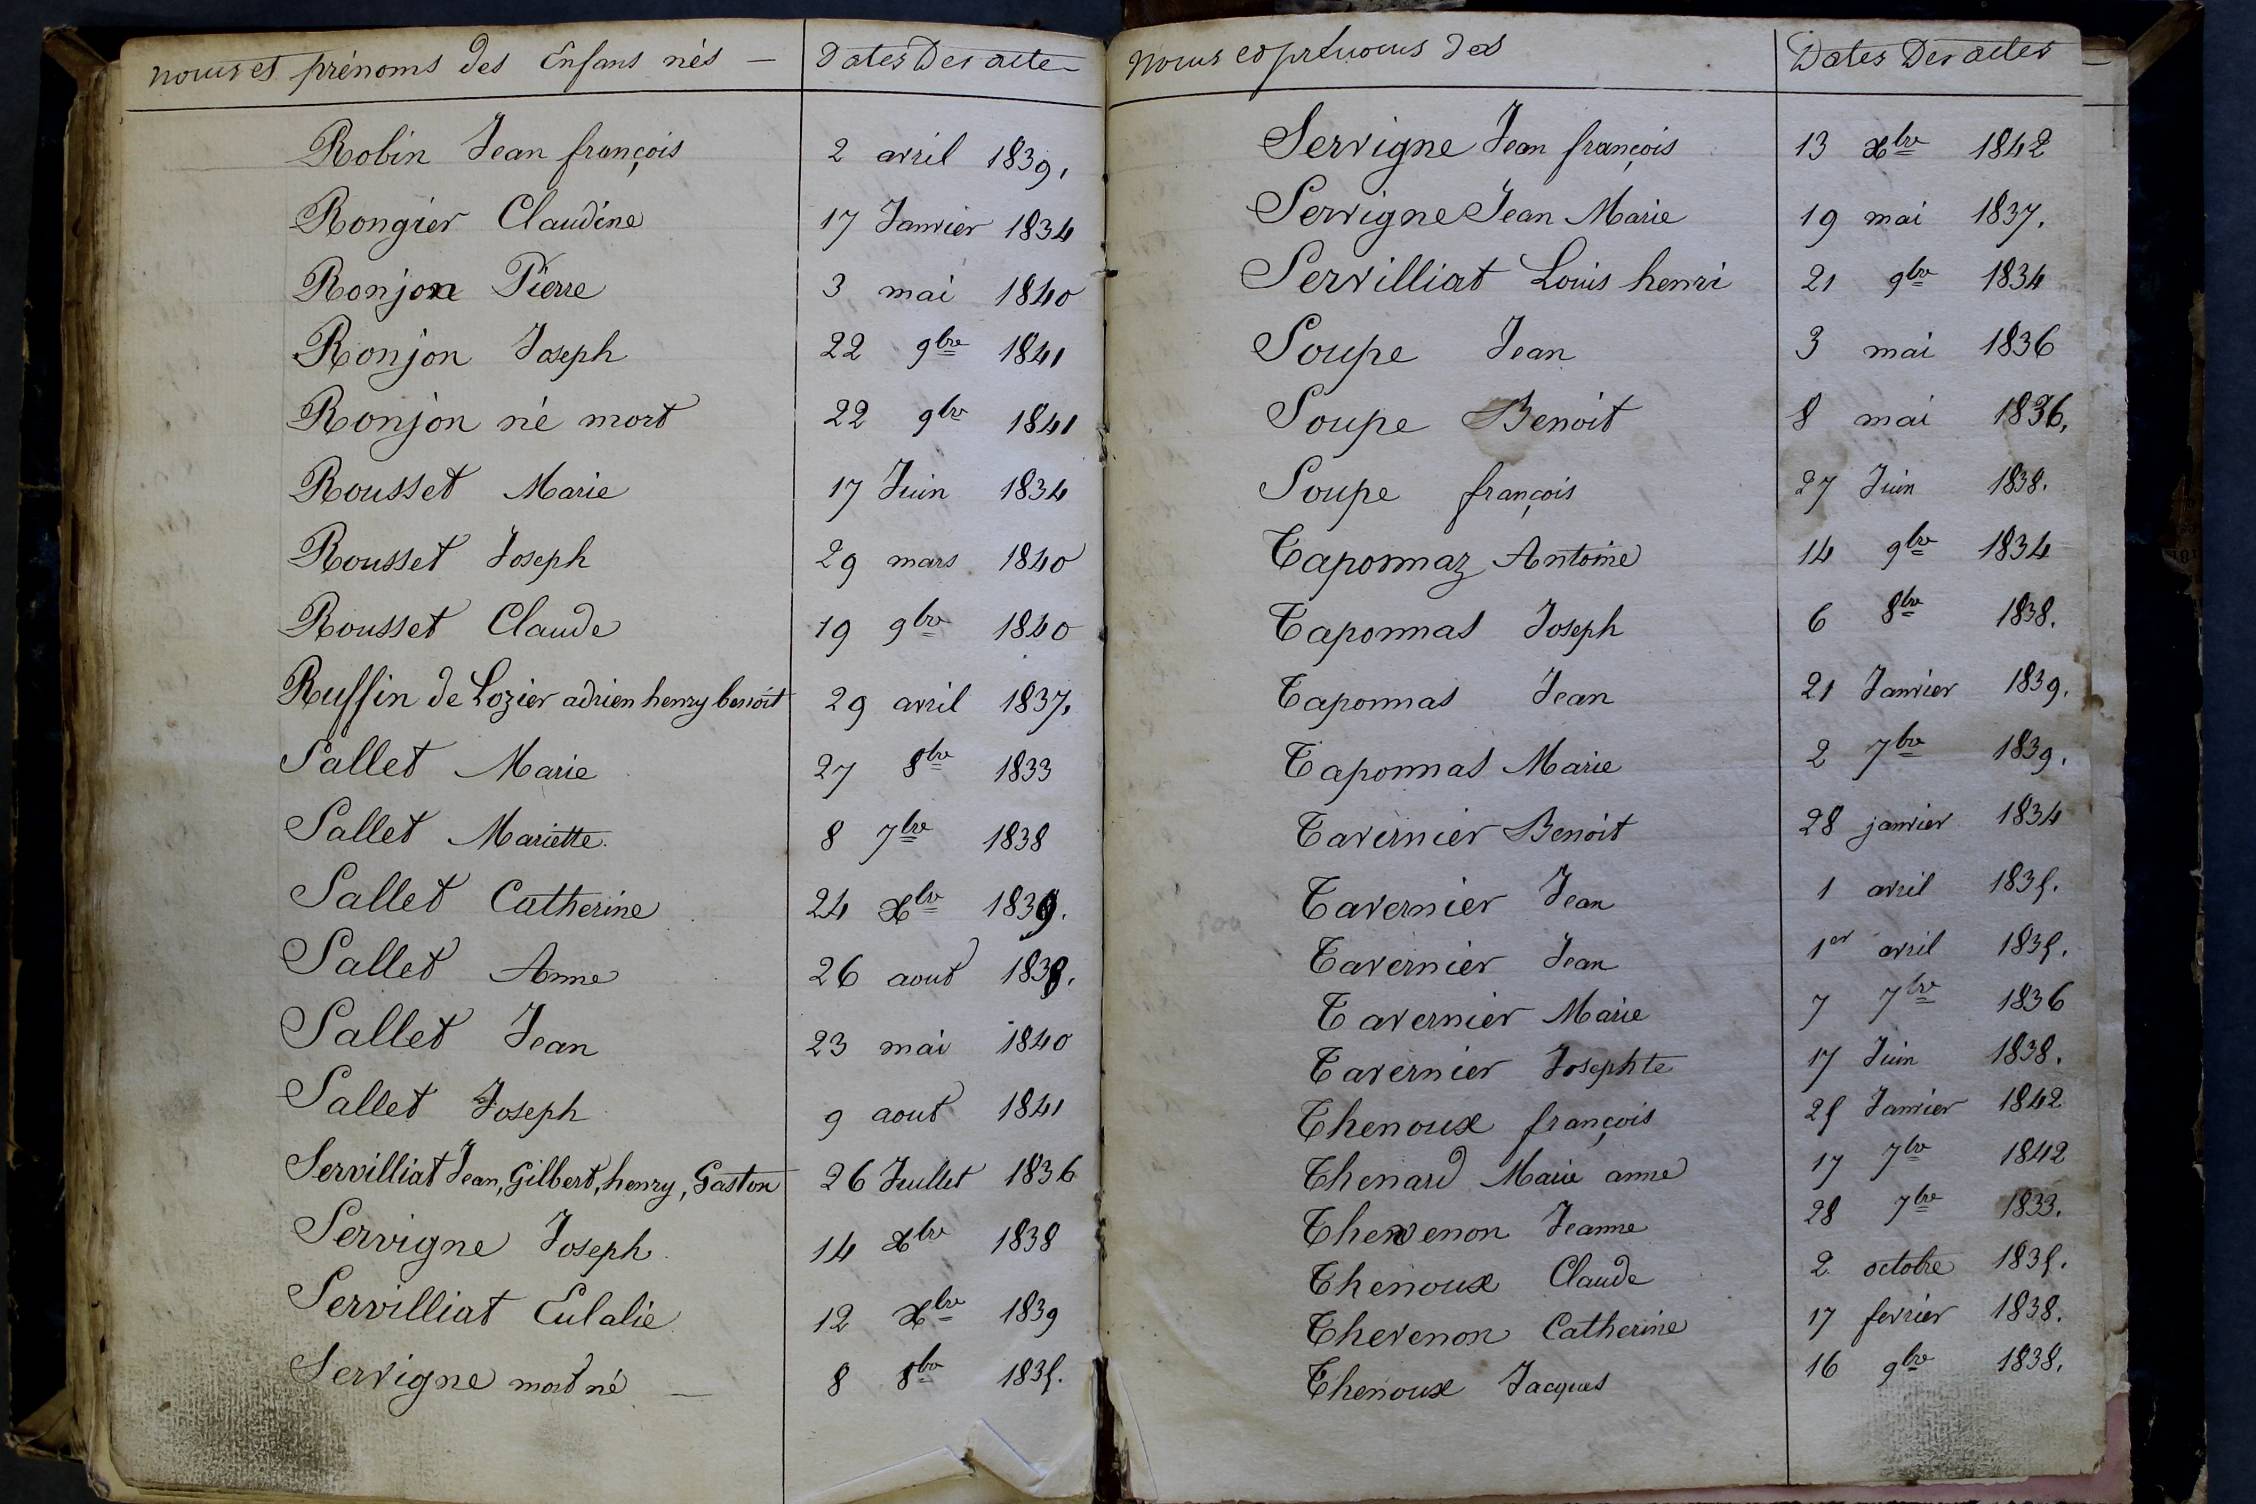 noms et prénoms des Enfans nés — Dates Des acte
Robin Jean françois 2 avril 1839,
Rongier Claudine 17 Janvier 1834
Ronjon Pierre 3 mai 1840
Ronjon Joseph 22 9bre 1841
Ronjon né mort 22 9bre 1841
Rousset Marie 17 Juin 1834
Rousset Joseph 29 mars 1840
Rousset Claude 19 9bre 1840
Ruffin de Lozier adrien henry benoit 29 avril 1837,
Sallet Marie 27 8bre 1833
Sallet Mariette. 8 7bre 1838
Sallet Catherine 24 Xbre 1839.
Sallet Anne 26 aout 1838.
Sallet Jean 23 mai 1840
Sallet Joseph 9 aout 1841
Servilliat Jean, Gilbert, henry, Gaston 26 Juillet 1836
Servigne Joseph. 14 Xbre 1838
Servilliat Eulalie 12 Xbre 1839
Servigne mort né — 8 8bre 1835.
Noms et prénoms des Dates Des actes
Servigne Jean françois 13 Xbre 1842
Servigne Jean Marie 19 mai 1837.
Servilliat Louis henri 21 9bre 1834
Soupe Jean 3 mai 1836
Soupe Benoit 8 mai 1836,
Soupe françois 27 Juin 1838.
Taponnaz Antoine 14 9bre 1834
Taponnas Joseph 6 8bre 1838.
Taponnas Jean 21 Janvier 1839.
Taponnas Marie 2 7bre 1839.
Tavernier Benoit 28 janvier 1834
Tavernier Jean 1 avril 1835.
Tavernier Jean 1er avril 1835.
Tavernier Marie 7 7bre 1836
Tavernier Josephte 17 Juin 1838.
Thenoux françois 25 Janvier 1842
Thenard Marie anne 17 7bre 1842
Thevenon Jeanne 28 7bre 1833.
Thenoux Claude 2 octobre 1835.
Thevenon Catherine 17 fevrier 1838.
Thenoux Jacques 16 9bre 1838.